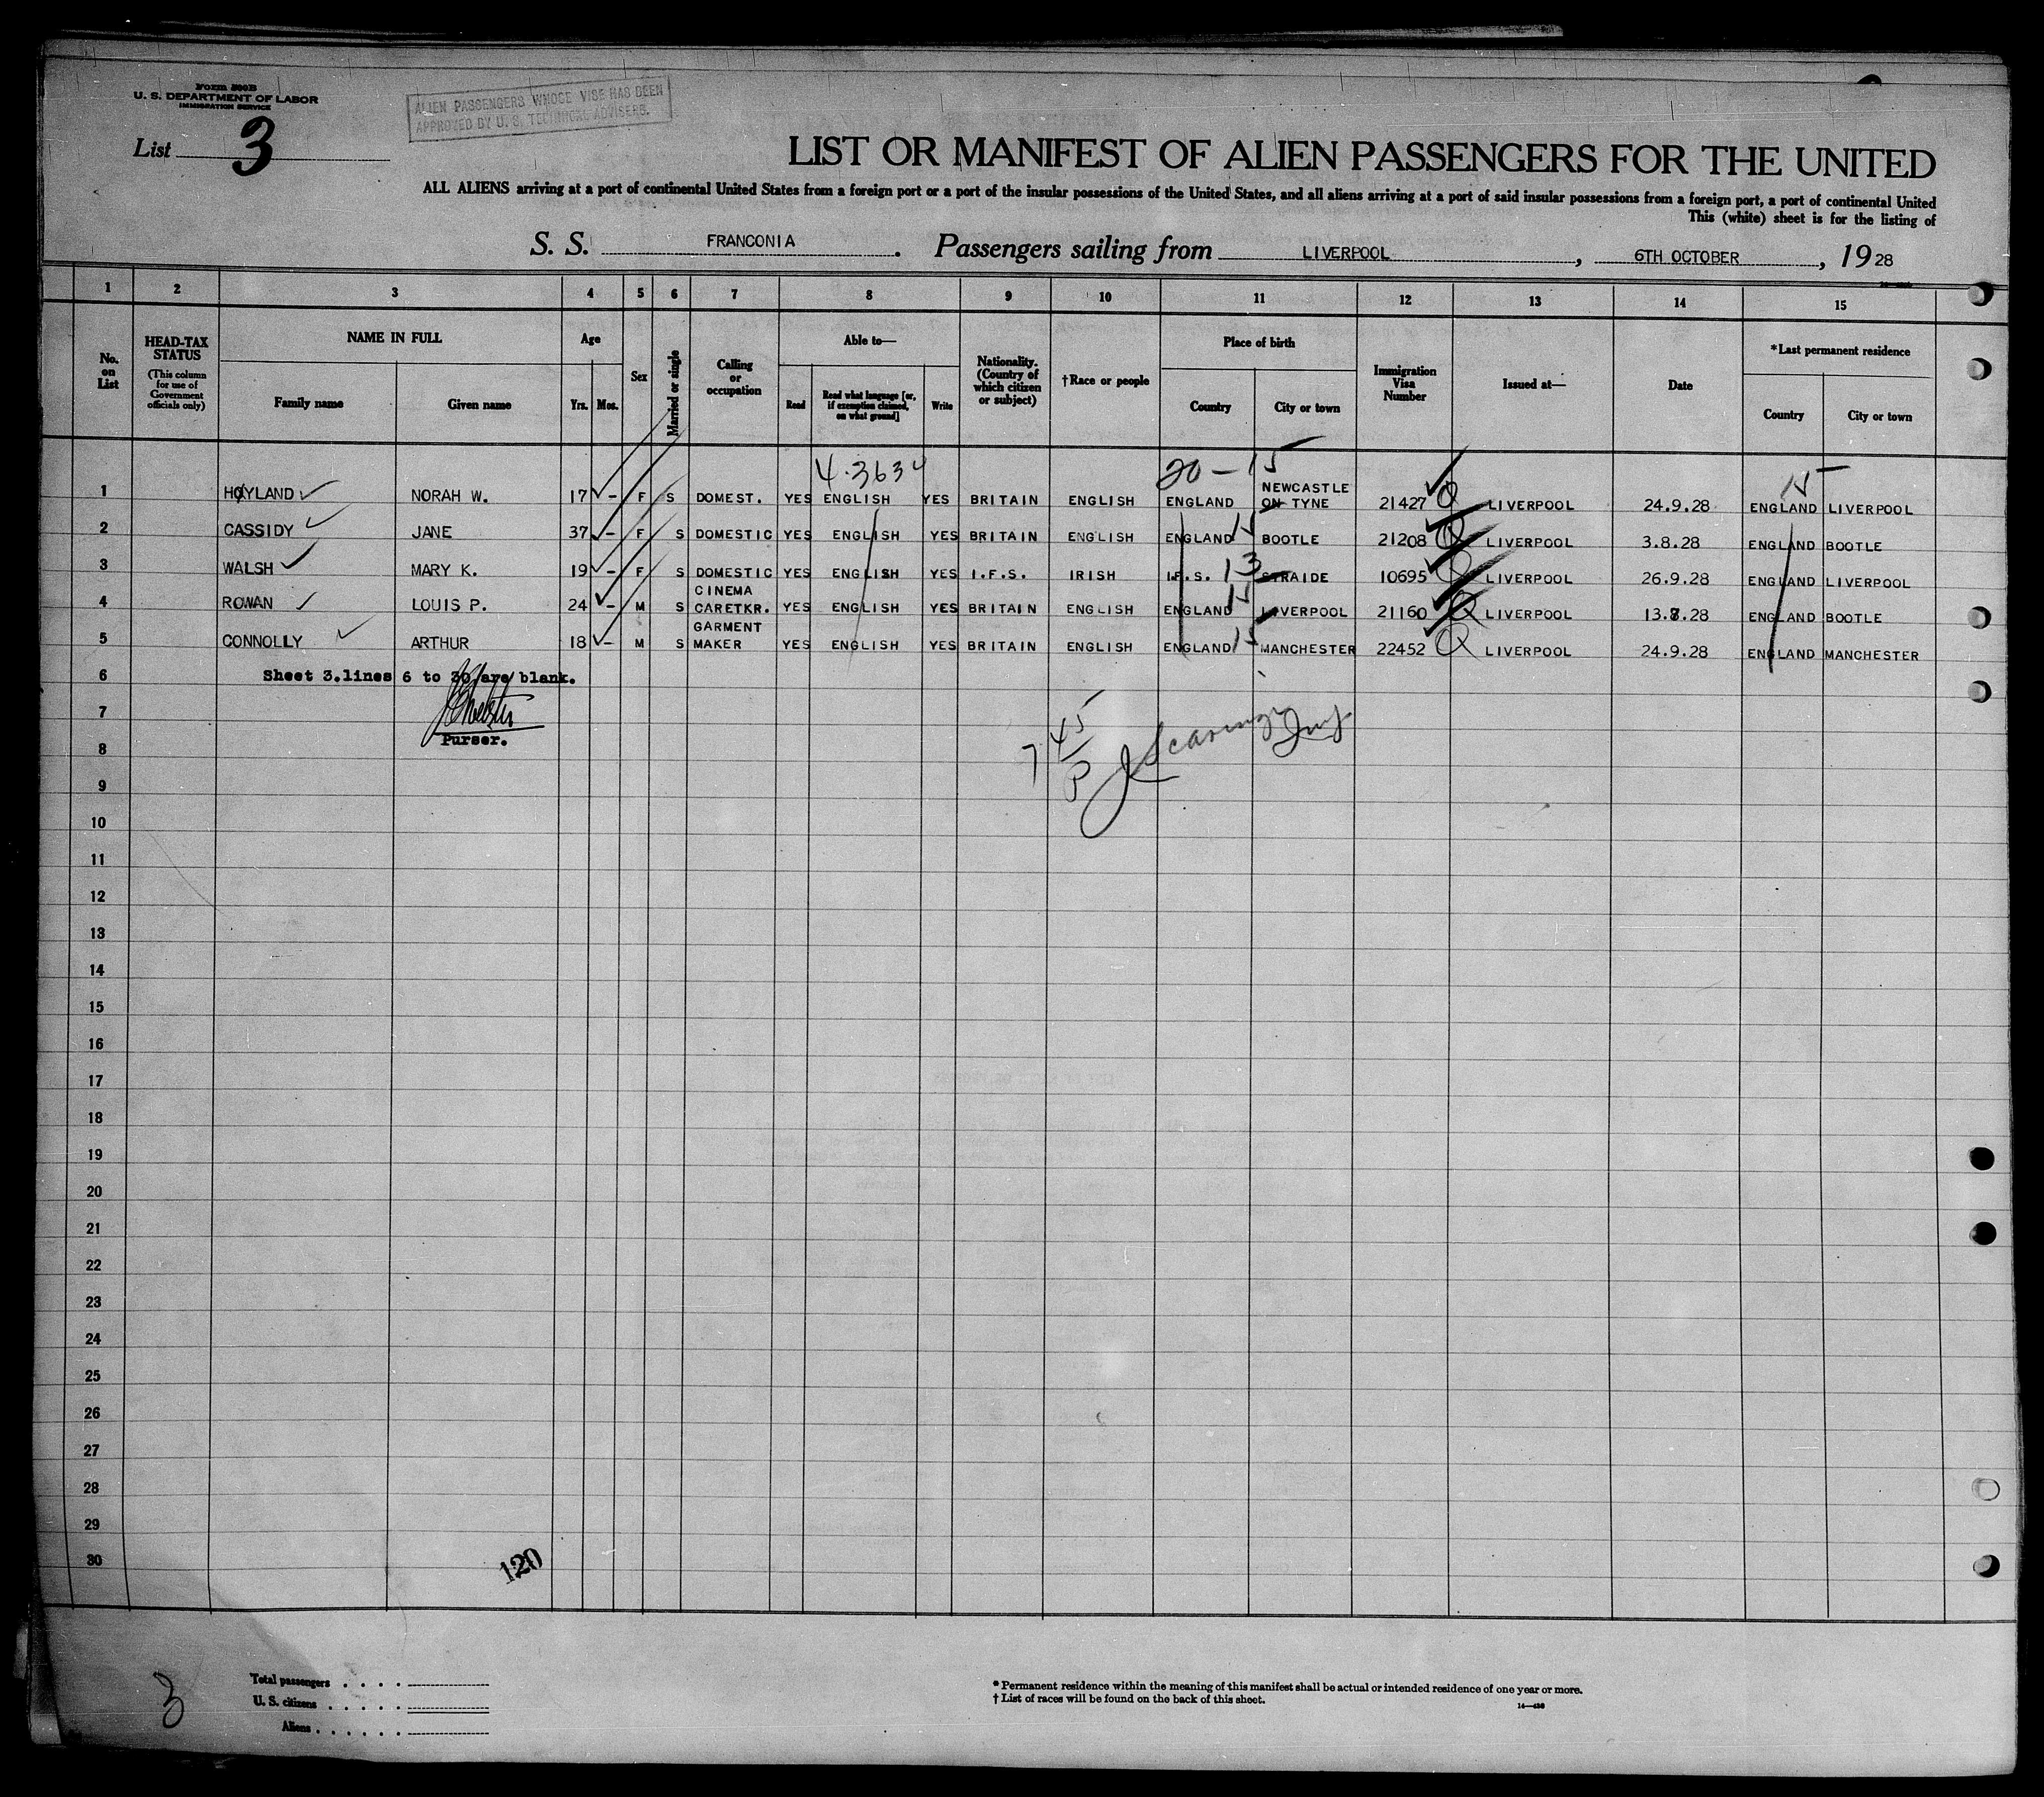 Form 500B
U. S. DEPARTMENT OF LABOR
IMMIGRATION SERVICE
ALIEN PASSENGERS WHOSE VISE HAS BEEN
APPROVED BY U. S. TECHNICAL ADVISERS.
List 3
LIST OR MANIFEST OF ALIEN PASSENGERS FOR THE UNITED
ALL ALIENS arriving at a port of continental United States from a foreign port or a port of the insular possessions of the United States, and all aliens arriving at a port of said insular possessions from a foreign port, a port of continental United
This (white) sheet is for the listing of
S. S. FRANCONIA. Passengers sailing from LIVERPOOL, 6TH OCTOBER, 1928
1 2 3 4 5 6 7 8 9 10 11 12 13 14 15
No. on List
HEAD-TAX STATUS (This column for use of Government officials only)
NAME IN FULL Family name Given name
Age Yrs. Mos.
Sex
Married or single
Calling or occupation
Able to— Read Read what language [or, if exemption claimed, on what ground] Write
Nationality. (Country of which citizen or subject)
†Race or people
Place of birth Country City or town
Immigration Visa Number
Issued at—
Date
*Last permanent residence Country City or town
4-3634 20-15 15
1 HOYLAND NORAH W. 17 - F S DOMEST. YES ENGLISH YES BRITAIN ENGLISH ENGLAND NEWCASTLE ON TYNE 21427 LIVERPOOL 24.9.28 ENGLAND LIVERPOOL
2 CASSIDY JANE 37 - F S DOMESTIC YES ENGLISH YES BRITAIN ENGLISH ENGLAND 15 BOOTLE 21208 LIVERPOOL 3.8.28 ENGLAND BOOTLE
3 WALSH MARY K. 19 - F S DOMESTIC YES ENGLISH YES I.F.S. IRISH I.F.S. 13 STRAIDE 10695 LIVERPOOL 26.9.28 ENGLAND LIVERPOOL
4 ROWAN LOUIS P. 24 - M S CINEMA CARETKR. YES ENGLISH YES BRITAIN ENGLISH ENGLAND 15 LIVERPOOL 21160 LIVERPOOL 13.8.28 ENGLAND BOOTLE
5 CONNOLLY ARTHUR 18 - M S GARMENT MAKER YES ENGLISH YES BRITAIN ENGLISH ENGLAND 15 MANCHESTER 22452 LIVERPOOL 24.9.28 ENGLAND MANCHESTER
6 Sheet 3.lines 6 to 30 are blank.
7
Purser.
7 45 P
8
9
10
11
12
13
14
15
16
17
18
19
20
21
22
23
24
25
26
27
28
29
30
120
3
Total passengers
U. S. citizens
Aliens
* Permanent residence within the meaning of this manifest shall be actual or intended residence of one year or more.
† List of races will be found on the back of this sheet.